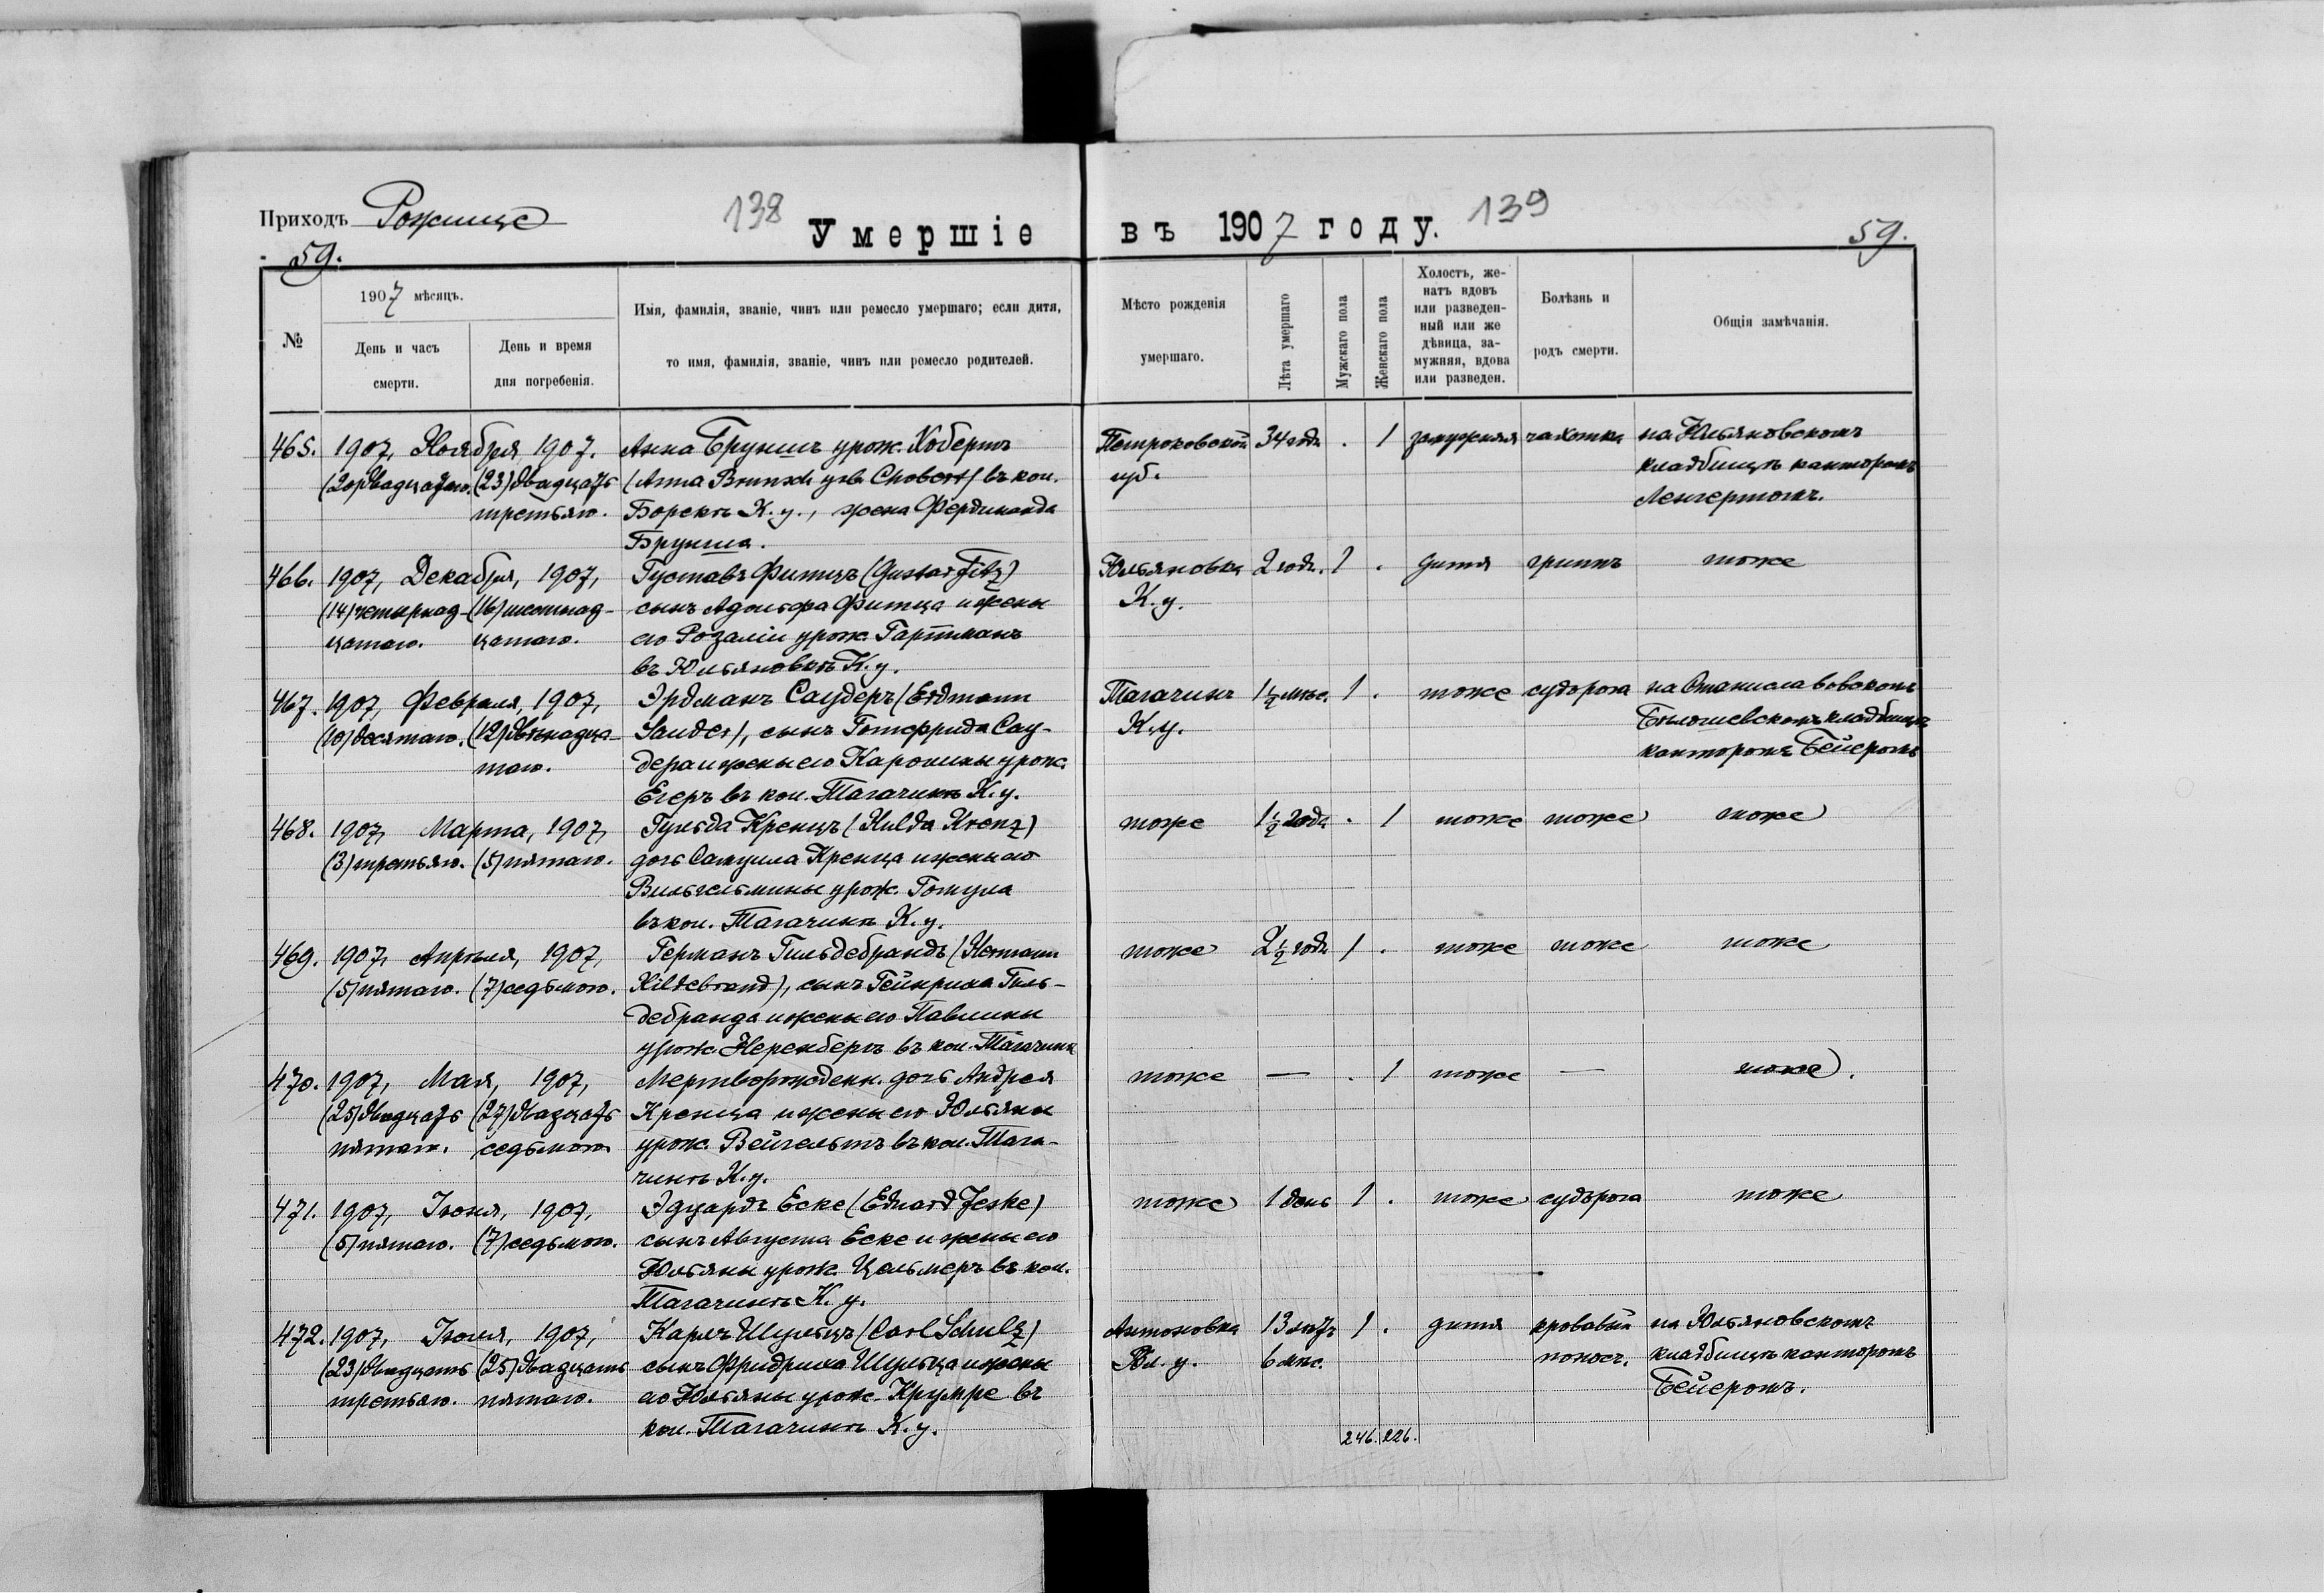 Приходъ Рожище
138
Умершіе
въ 1907 году.
139
59.
59.
№
1907 мѣсяцъ.
День и часъ
смерти.
День и время
дня погребенія.
Имія, фамилія, званіе, чинъ или ремесло умершаго; если дитя,
то имя, фамилія, званіе, чинъ или ремесло родителей.
Мѣсто рожденія
умершаго.
Лѣта умершаго
Мужскаго пола
Женскаго пола
Холостъ, же-
натъ вдовъ
или разведен-
ный или же
дѣвица, за-
мужняя, вдова
или разведен.
Болѣзнь и
родъ смерти.
Общія замѣчанія.
465. 1907, Ноября, 1907. Анна Бруншъ урож. Хобертъ Петроковской 34 года . 1 замужняя чахотка на Юльяновскомъ
(20) двадцатаго. (23) двадцать (Anna Brunsch geb. Chobert) въ кол. губ. кладбищѣ канторомъ
третьяго. Борекъ К. у., жена Фердинанда Ленгертомъ.
Брунша.
466. 1907, Декабря, 1907, Густавъ Фитцъ (Gustav Fitz) Юльяновка 2 года. 1 . дитя гриппъ тоже
(14) четырнад- (16) шестнад- сынъ Адольфа Фитца и жены К. у.
цатаго. цатаго. его Розаліи урож. Гартманъ
въ Юльяновкѣ К. у.
467. 1907, Февраля, 1907, Эрдманъ Саудеръ (Erdmann Тагачинъ 1½ мѣс. 1 . тоже судорога на Станиславовскомъ
(10) десятаго. (12) двѣнадца- Sauder), сынъ Готфрида Сау- К. у. кладбищѣ
таго. дера и жены его Каролины урож. канторомъ Бейеромъ
Егеръ въ кол. Тагачинъ К. у.
468. 1907, Марта, 1907, Гульда Кренцъ (Hulda Krenz) тоже 1½ года . 1 тоже тоже тоже
(3) третьяго. (5) пятаго. дочь Самуила Кренца и жены его
Вильгельмины урож.
въ кол. Тагачинъ К. у.
469. 1907, Апрѣля, 1907, Германъ Гильдебрандъ (Hermann тоже 2½ года 1 . тоже тоже тоже
(5) пятаго. (7) седьмого. Hildebrand), сынъ Гейнриха Гиль-
дебранда и жены его Павлины
урож. Неренбергъ въ кол. Тагачинъ
470. 1907, Мая, 1907, Мертворожденн. дочь Андрея тоже — . 1 тоже — тоже.
(25) двадцать (27) двадцать Кренца и жены его Юльяны
пятаго. седьмого урож. Вейгельтъ въ кол. Тага-
чинъ К. у.
471. 1907, Іюня, 1907, Эдуардъ Еске (Eduard Jeske) тоже 1 день 1 . тоже судорога тоже
(5) пятаго. (7) седьмого. сынъ Августа Еске и жены его
Юльяны урож. Цельмеръ въ кол.
Тагачинъ К. у.
472. 1907, Іюля, 1907, Карлъ Шульцъ (Carl Schulz) Антоновка 13 лѣтъ 1 . дитя кровавый на Юльяновскомъ
(23) двадцать (25) двадцать сынъ Фридриха Шульца и жены Вл. у. 6 мѣс. поносъ. кладбищѣ канторомъ
третьяго. пятаго. его Юльяны урож. въ Бейеромъ.
кол. Тагачинъ К. у.
246. 226.